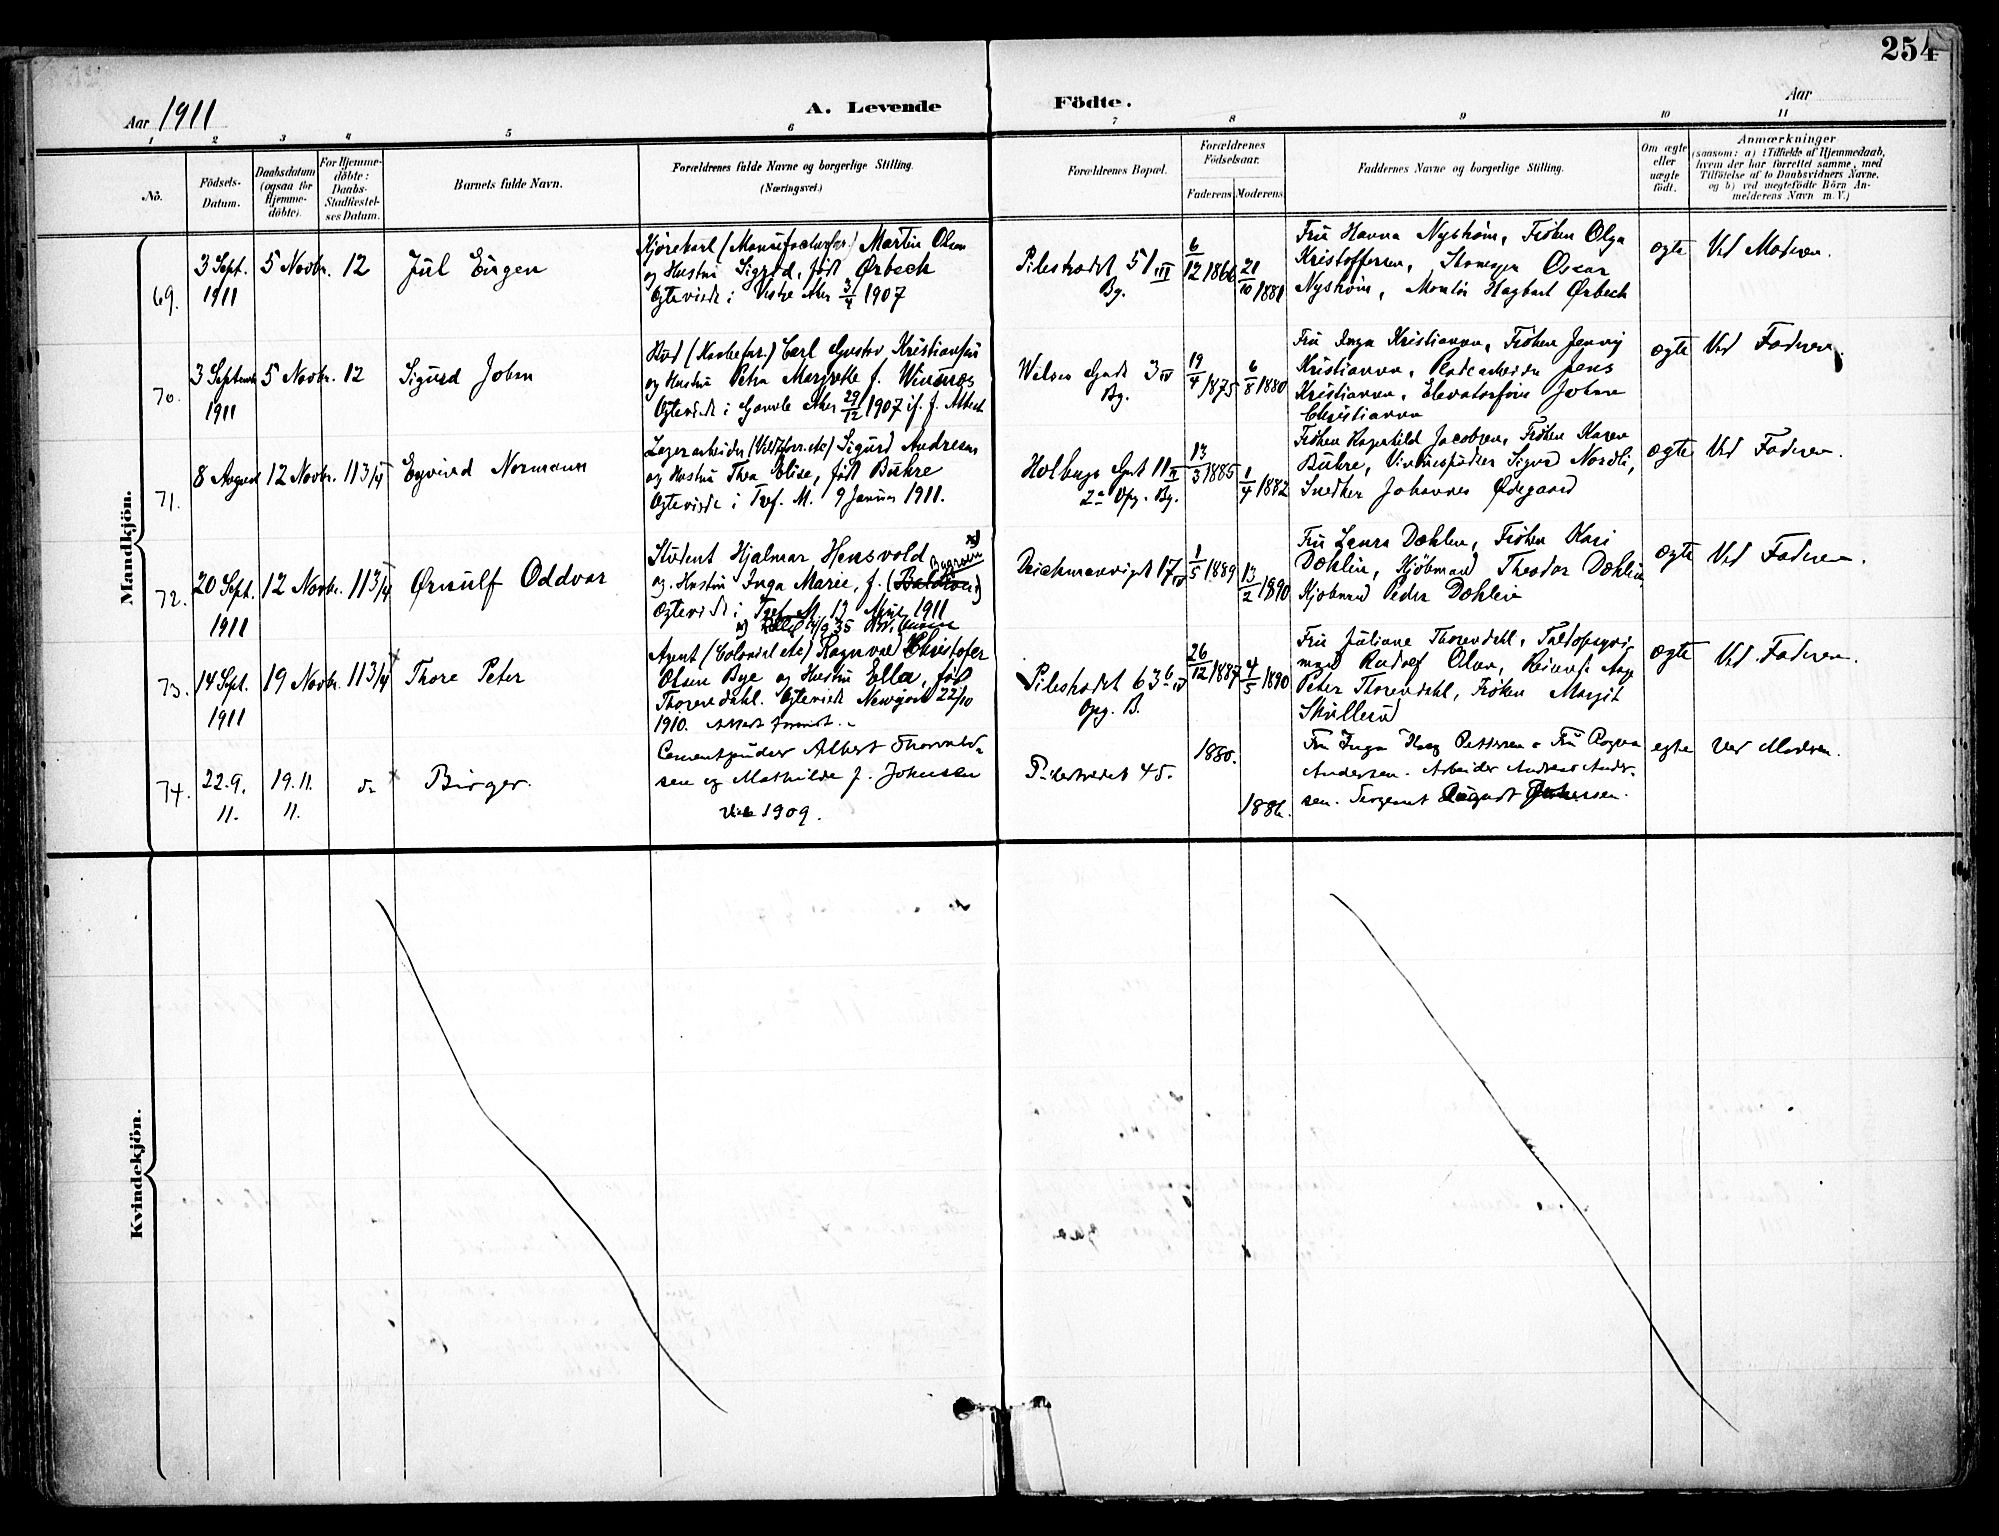 254
Aar 1911
A. Levende
Födte.
Aar
1 2 3 4 5 6 7 8 9 10 11
No.
Födsels-
Datum.
Daabsdatum
(ogsaa for
Hjemme-
döbte).
For Hjemme-
döbte:
Daabs-
Stadfæstel-
ses Datum.
Barnets fulde Navn.
Forældrenes fulde Navne og borgerlige Stilling.
(Næringsvei.)
Forældrenes Bopæl.
Forældrenes
Födselsaar.
Faderens Moderens
Faddernes Navne og borgerlige Stilling.
Om ægte
eller
uægte
födt.
Anmærkninger
(saasom: a) i Tilfælde af Hjemmedaab,
hvem der har forrettet samme, med
Tilföielse af to Daabsvidners Navne,
og b) ved uægtefödte Börn An-
melderens Navn m. V.)
Mandkjön.
69.
3 Sept.
1911
5 Novbr. 12
Jul Eugen
Kjørekarl (Manufacturfor.) Martin Olsen
og Hustru Sigrid, født Ørbech
Ægteviede i Vestre Aker 3/4 1907
Pilestrædet 51 III
Bg.
6/12 1866
21/10 1881
Fru Hanna Nystrøm, Frøken Olga
Kristoffersen, Oscar
Nystrøm, Montør Hagbart Ørbech
ægte
Ved Moderen.
70.
3 Septembr
1911
5 Novbr. 12
Sigurd John
Bud Carl Gustav Kristiansen
og Hustru Petra Margrethe f. Winsnes
Ægteviede i Gamle Aker 29/12 1907 if. f. Attest
Wilses Gade 3 IV
Bg.
19/4 1875
6/8 1880
Fru Inga Kristiansen, Frøken Jenny
Kristiansen, Jens
Kristiansen, Elevatorfører Johan
Christiansen
ægte
Ved Faderen.
71.
8 August
12 Novbr. 11 3/4
Eyvind Normann
Lagerarbeider Sigurd Andresen
og Hustru Thea Elise, født Buhre
Ægteviede i Tref. M. 9 Januar 1911.
Holbergs Gade 11 II
2a Opg. Bg.
13/3 1885
1/4 1882
Frøken Ragnhild Jacobsen, Frøken Karen
Buhre, Sigurd Nordli,
Snedker Johannes Ødegaard
ægte
Ved Faderen.
72.
20 Sept.
1911
12 Novbr. 11 3/4
Ørnulf Oddvar
Student Hjalmar Hensvold
og Hustru Inga Marie, f.
Ægteviede i Tref. M. 13 1911
Deichmansgt 17 IV
1/5 1889
13/2 1890
Fru Laura Dæhlen, Frøken Kari
Dæhlin, Kjøbmand Theodor Dæhlin,
Kjøbmand Peder Dæhlin
ægte
Ved Faderen.
73.
14 Sept.
1911
19 Novbr. 11 3/4
Thore Peter
Agent (Colonial etc) Ragnvald Christofer
Olsen Bye og Hustru Ella, født
Thorendahl. Ægteviede Newyork 22/10
1910. Attest
Pilestrædet 63 b IV
Opg. B.
26/12 1887
4/5 1890
Fru Juliane Thorendahl,
Rudolf Olsen,
Peter Thorendahl, Frøken Margit
Skullerud
ægte
Ved Faderen.
74.
22.9.
11.
19.11.
11.
do
Birger.
Cementgjuder Albert Thorvald-
sen og Mathilde f. Johnsen
Viet 1909.
Pilestrædet 45.
1880.
1886.
Fru Inga Pettersen - Fru Ragna
Andersen. Arbeider Andreas Ander-
sen. Sergeant August
egte
Ved Moderen.
Kvindekjön.